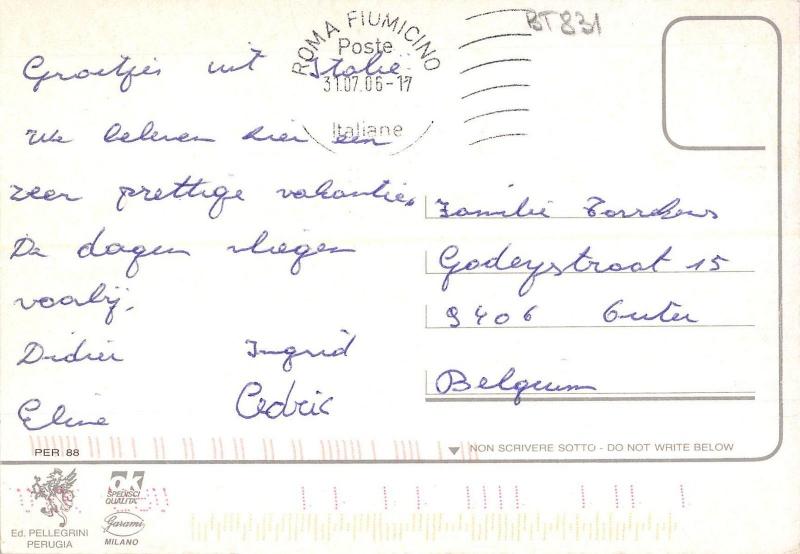 BT831
ROMA FIUMICINO
Poste
31.07.06-17
Italiane
Groetjes uit Italië
We beleven hier een
zeer prettige vakantie.
De dagen vliegen
voorbij.
Didier Ingrid
Eline Cedric
Familie
Godeystraat 15
9406 Outer
Belgium
PER 88
NON SCRIVERE SOTTO - DO NOT WRITE BELOW
Ed. PELLEGRINI
PERUGIA
ok
SPEDISCI
QUALITA'
Garami
MILANO